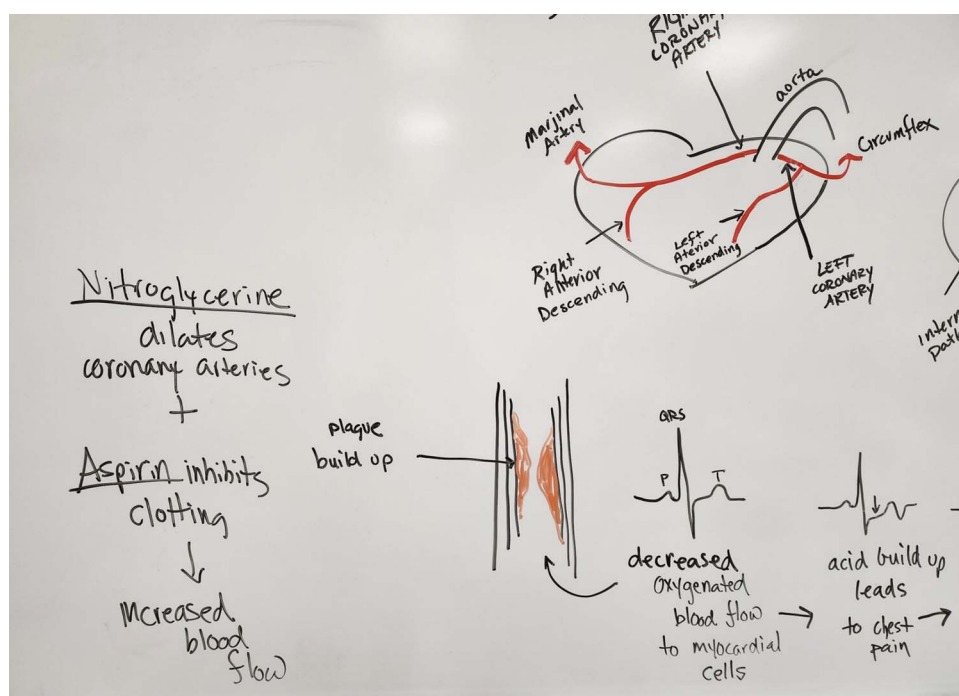 RIGHT
CORONARY
ARTERY
aorta
Marjinal
Artery
Circumflex
Right
Anterior
Descending
Left
Aterior
Descending
LEFT
CORONARY
ARTERY
Nitroglycerine
dilates
coronary arteries
+
Aspirin inhibits
clotting
Increased
blood
flow
plaque
build up
QRS
P
T
decreased
oxygenated
blood flow
to myocardial
cells
acid build up
leads
to chest
pain